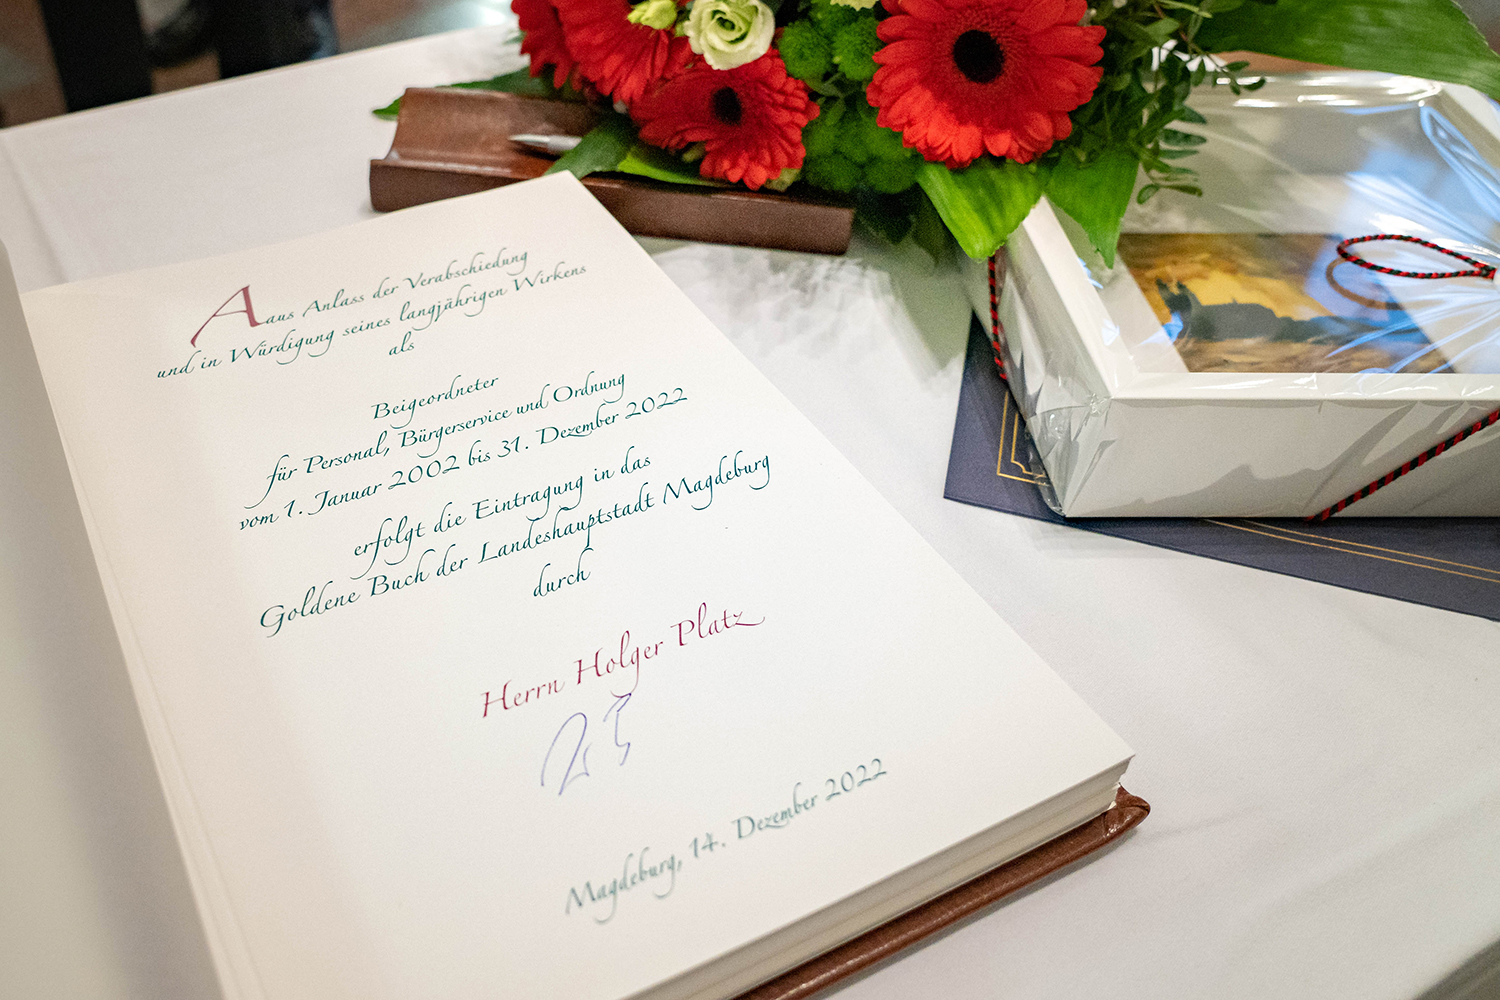 Aaus Anlass der Verabschiedung
und in Würdigung seines langjährigen Wirkens
als
Beigeordneter
für Personal, Bürgerservice und Ordnung
vom 1. Januar 2002 bis 31. Dezember 2022
erfolgt die Eintragung in das
Goldene Buch der Landeshauptstadt Magdeburg
durch
Herrn Holger Platz
Magdeburg, 14. Dezember 2022